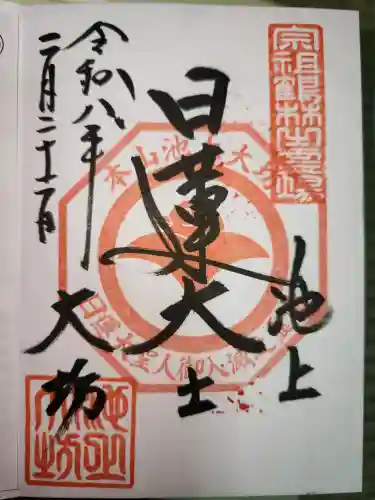 宗祖鶴林霊場
池上
日蓮大士
本山池上大坊
日蓮大聖人御入滅之
令和八年
二月二十二日
大坊
池上大坊